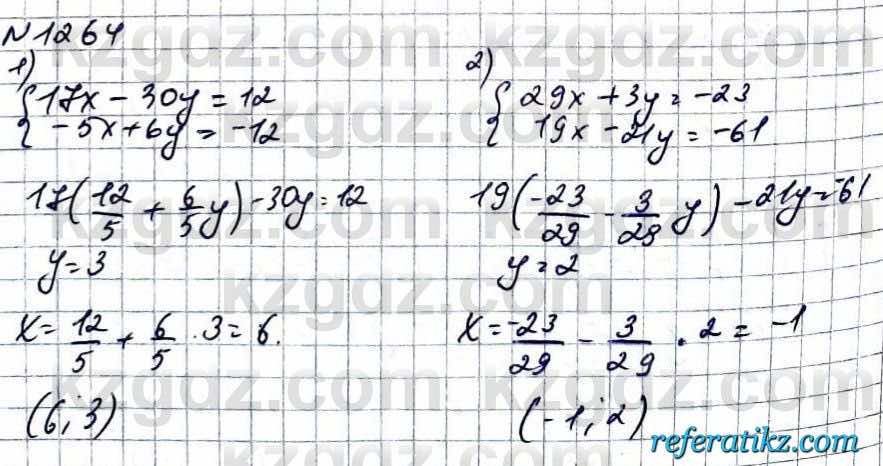 №1264
1)
{17x - 30y = 12
{-5x + 6y = -12
17(12/5 + 6/5 y) - 30y = 12
y = 3
x = 12/5 + 6/5 · 3 = 6.
(6; 3)
2)
{29x + 3y = -23
{19x - 21y = -61
19(-23/29 - 3/29 y) - 21y = -61
y = 2
x = -23/29 - 3/29 · 2 = -1
(-1; 2)
kzgdz.com
referatikz.com